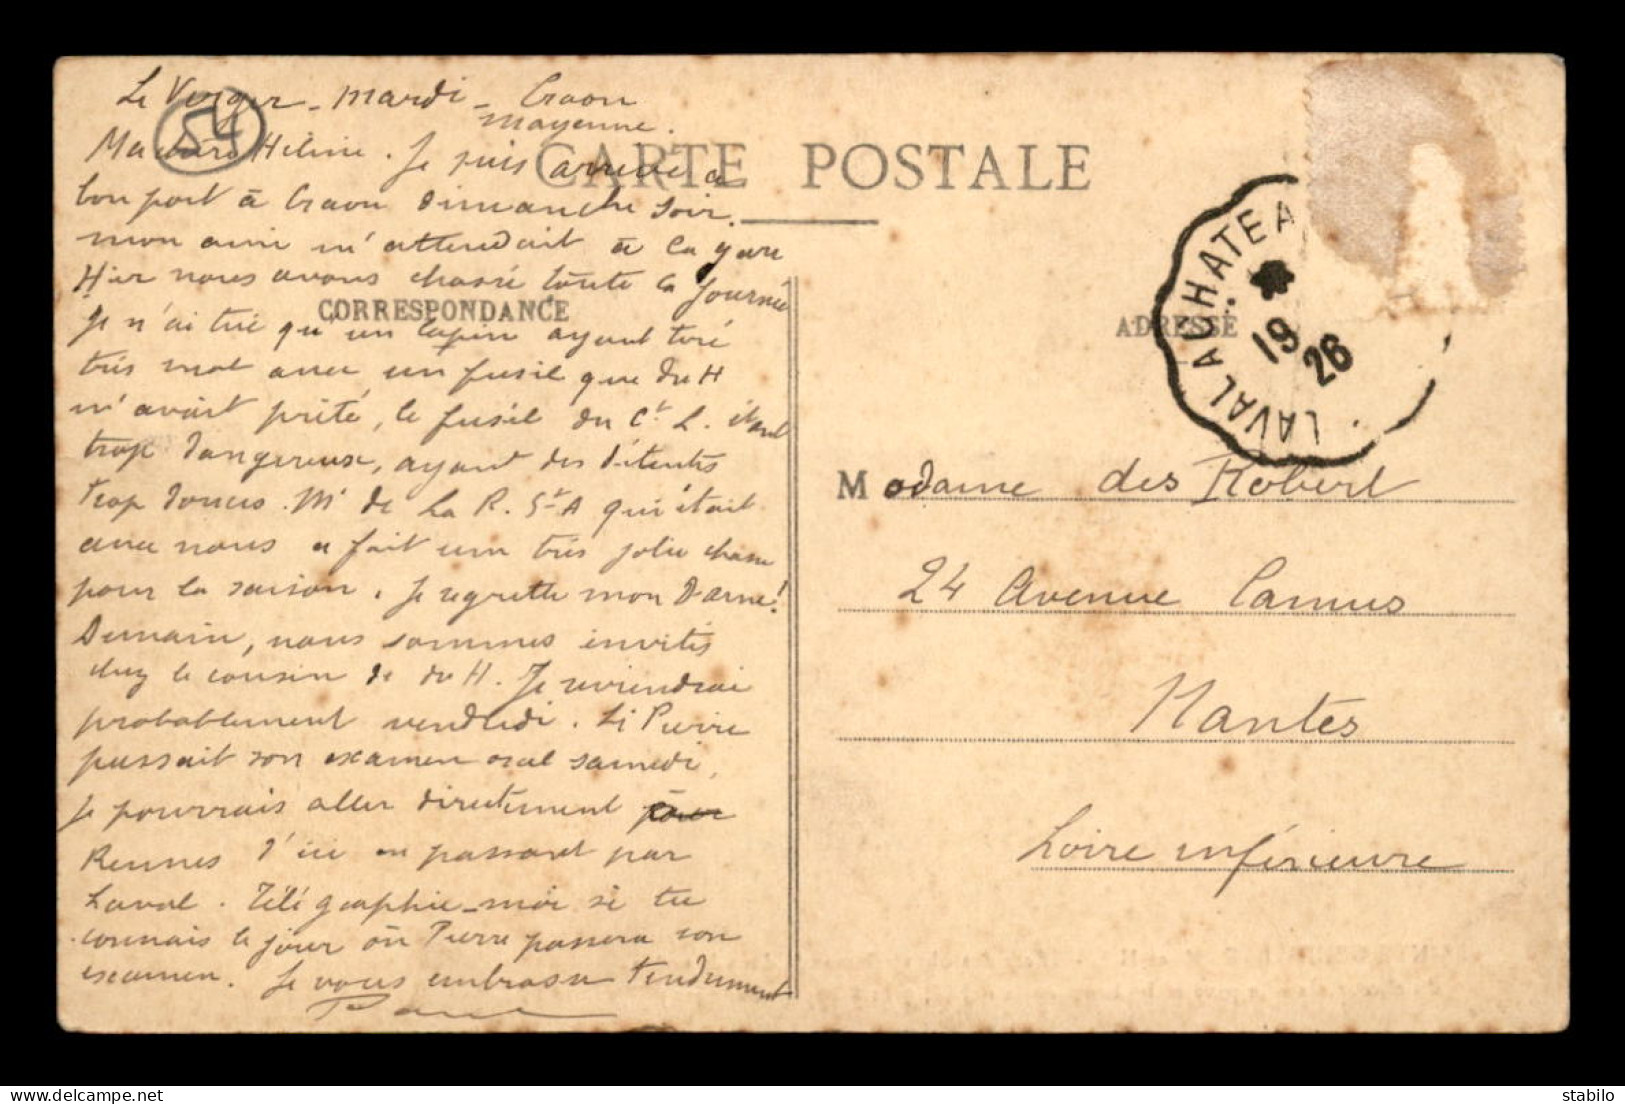 Le Verger - mardi - Craon
Mayenne.
54
Ma chère Hélène. Je suis arrivé à
bon port à Craon Dimanche soir.
mon ami m'attendait à la gare
Hier nous avons chassé toute la journée
Je n'ai tué qu'un lapin ayant tiré
très mal avec un fusil que du H
m'avait prêté, le fusil du Ct. L. étant
trop dangereux, ayant des détentes
trop douces. Mr de La R. St A qui était
avec nous a fait une très jolie chasse
pour la saison. Je regrette mon Darne!
Demain, nous sommes invités
chez le cousin de du H. Je reviendrai
probablement vendredi. Si Pierre
passait son examen oral samedi,
je pourrais aller directement pour
Rennes d'ici en passant par
Laval. Télégraphie-moi si tu
connais le jour où Pierre passera son
examen. Je vous embrasse tendrement
Paul
CARTE POSTALE
CORRESPONDANCE
ADRESSE
LAVAL A CHATEA
19
26
Madame des Robert
24 Avenue Camus
Nantes
Loire inférieure
stabilo
delcampe.net